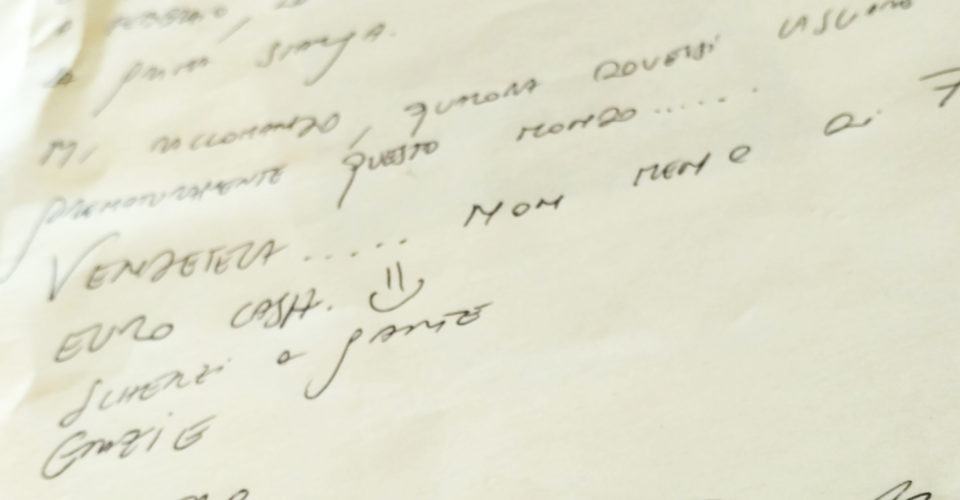 A PRIMA STANZA.
MI RACCOMANDO, QUALORA DOVESSI LASCIARE
PREMATURAMENTE QUESTO MONDO......
VENDETELA..... NON MENO DI 7
EURO CASH. =)
SCHERZI A PARTE
GRAZIE